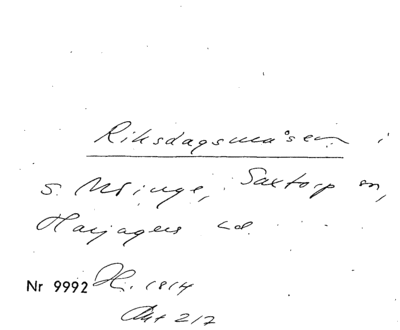 Riksdagsmåsen i
S. Möinge, Saxtorp sn,
Harjagers hd.
Nr 9992 H. 1814
Akt 217